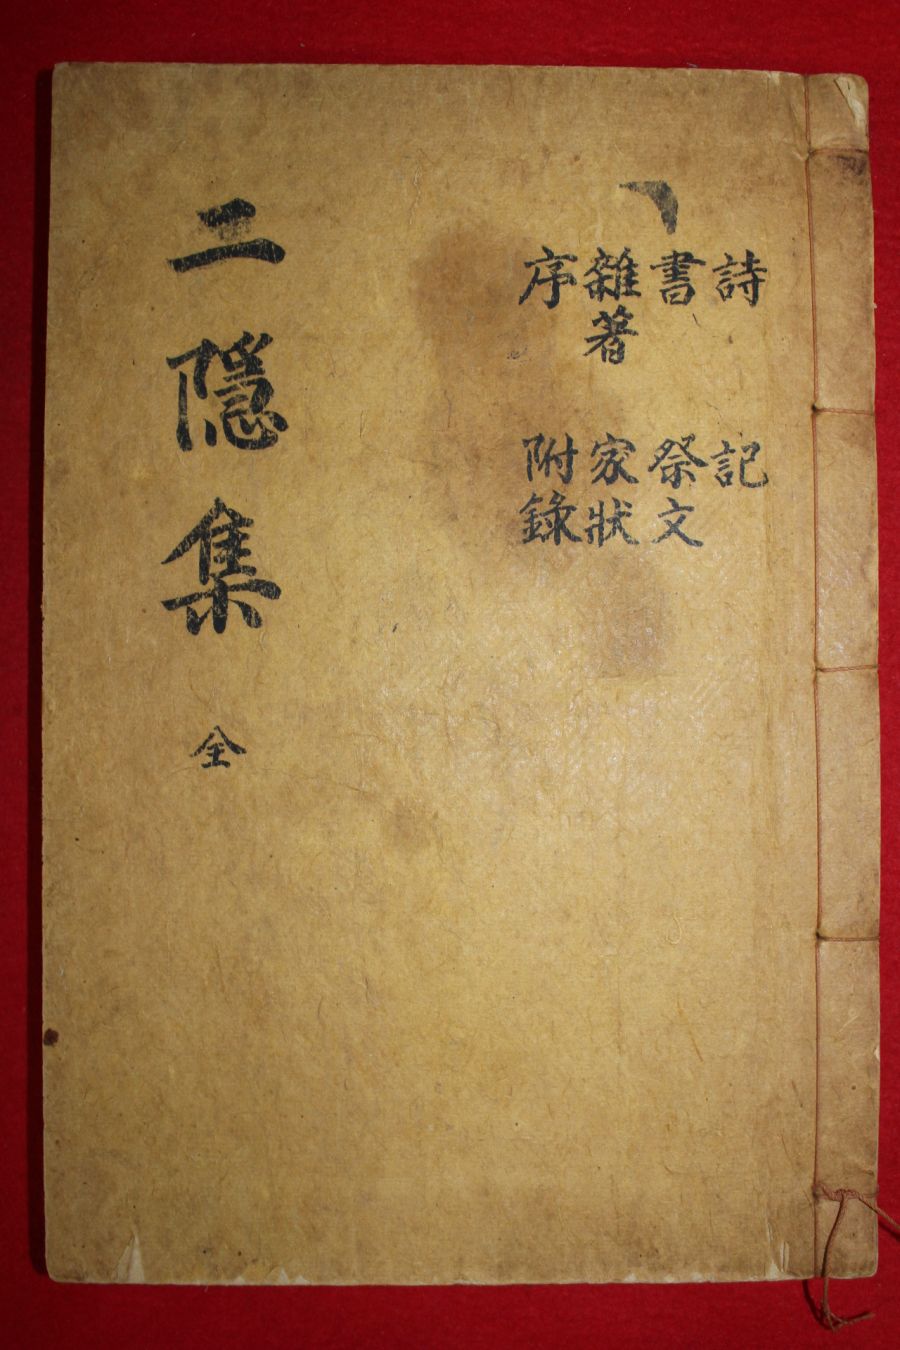 詩
書
雜著
序
記
祭文
家狀
附錄
二隱集 全